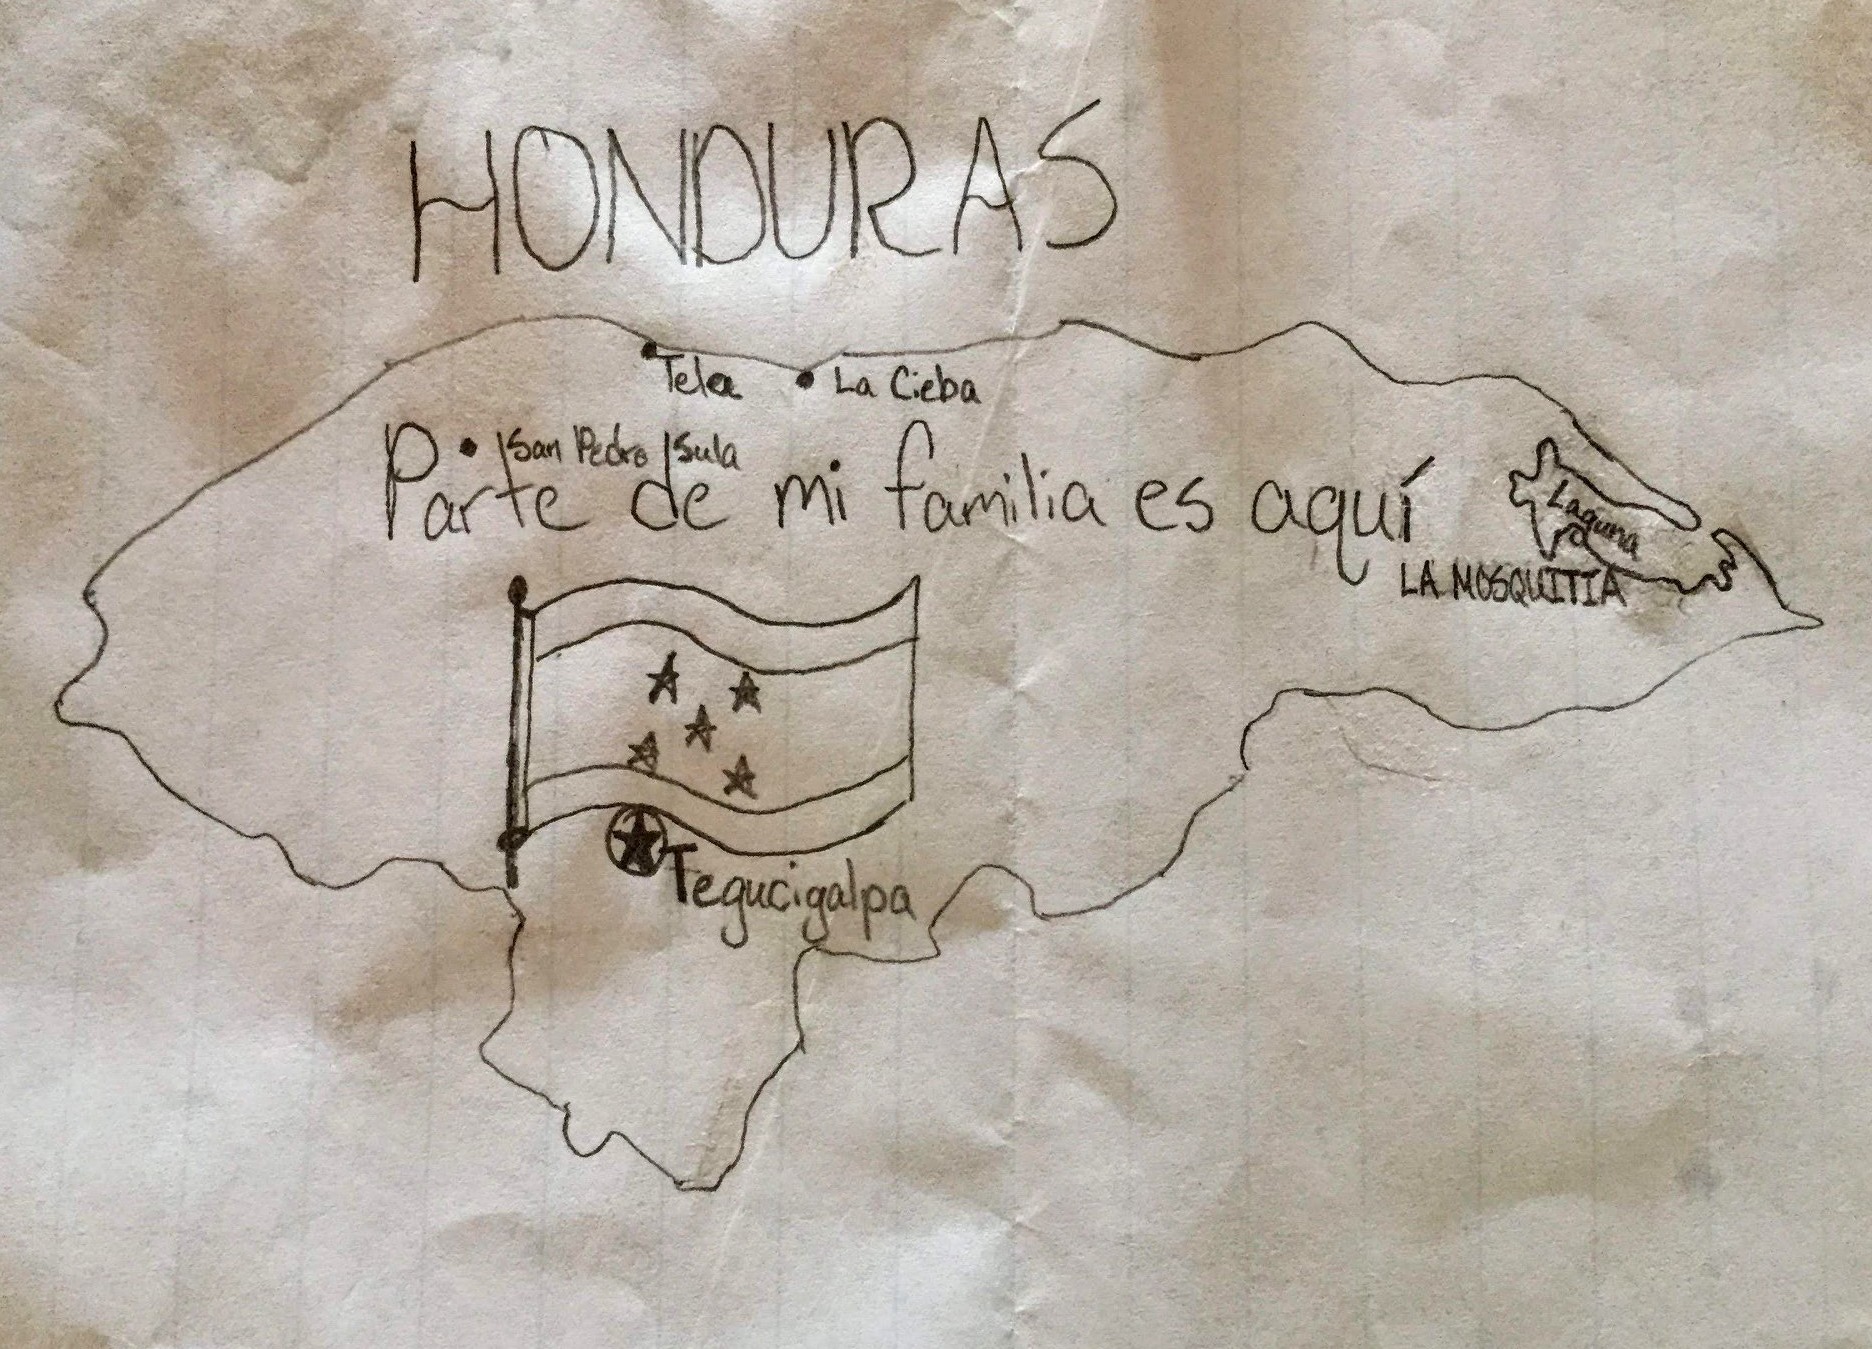 HONDURAS
Tela
La Cieba
San Pedro Sula
Parte de mi familia es aquí
Laguna
LA MOSQUITIA
Tegucigalpa